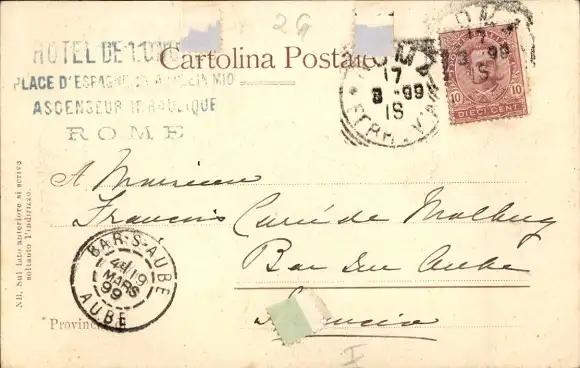 2G
HOTEL DE
Cartolina Postale
PLACE D'ESPAGNE
ASCENSEUR HYDRAULIQUE
ROME
ROMA
17
3 - 99
1S
FERROVIA
ROMA
17
3 99
1S
10 10
DIECI CENT.
A Monsieur
François Curé de Malberg
Bar sur Aube
France
Provinc
NB. Sul lato anteriore si scriva
soltanto l'indirizzo.
BAR-S-AUBE
4E 19
MARS
99
AUBE
I